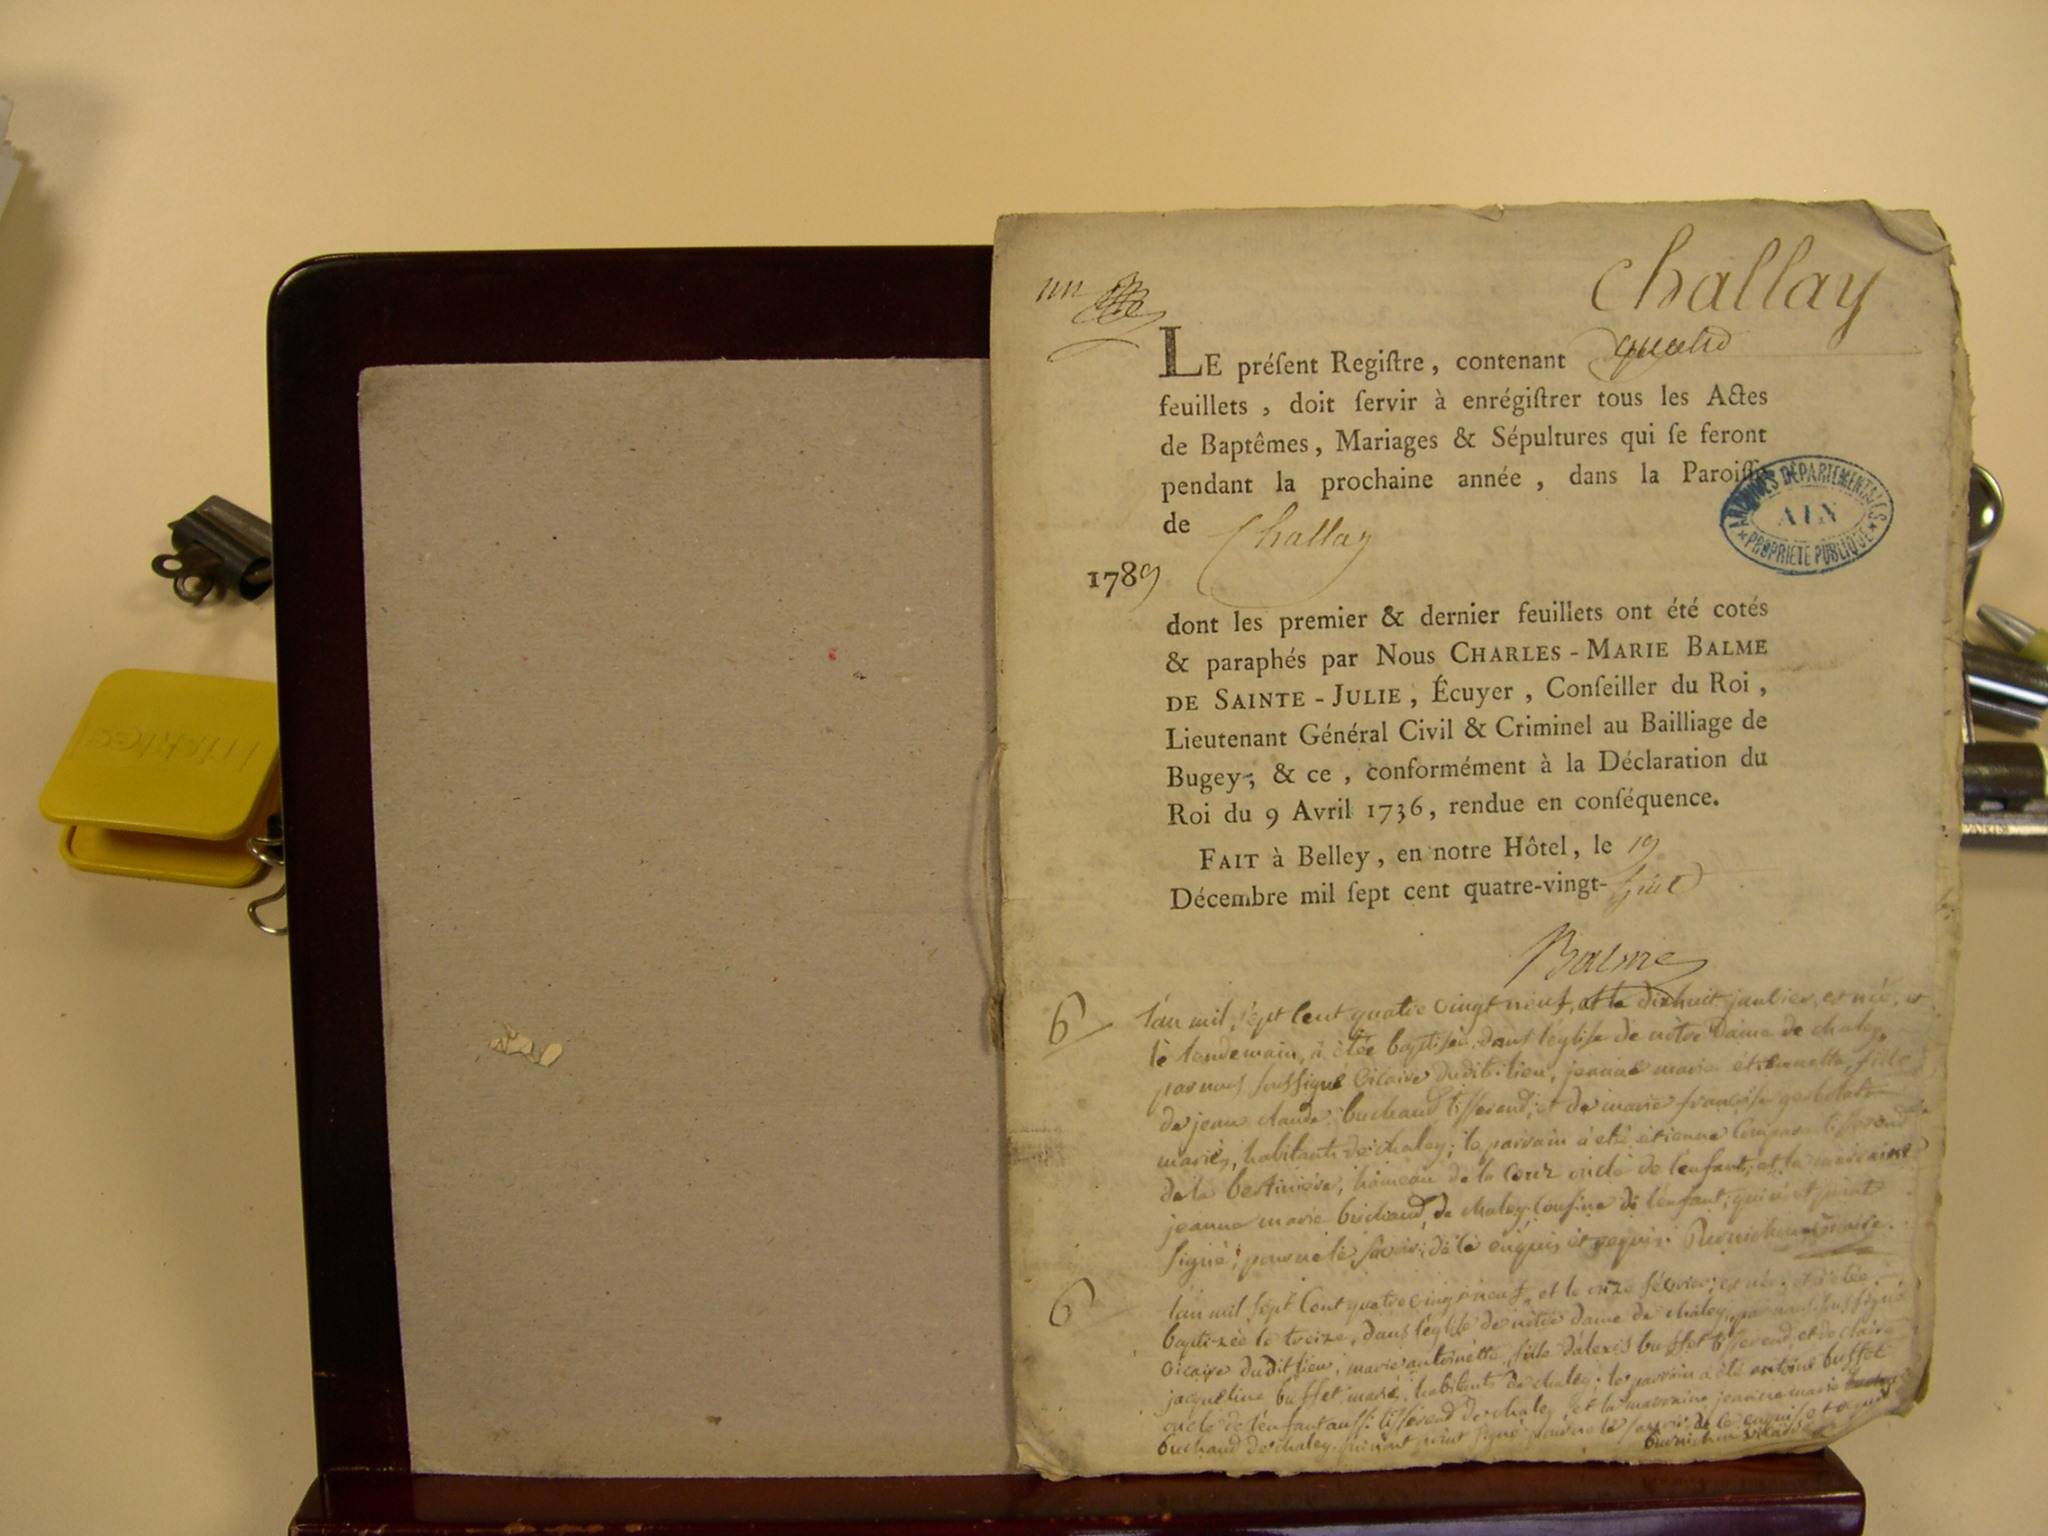 Challay
LE préſent Regiſtre, contenant quatre
feuillets, doit ſervir à enrégiſtrer tous les Actes
de Baptêmes, Mariages & Sépultures qui ſe feront
pendant la prochaine année, dans la Paroiſſe
de Challay
1789
ARCHIVES DÉPARTEMENTALES
AIN
PROPRIÉTÉ PUBLIQUE
dont les premier & dernier feuillets ont été cotés
& paraphés par Nous CHARLES-MARIE BALME
DE SAINTE-JULIE, Écuyer, Conſeiller du Roi,
Lieutenant Général Civil & Criminel au Bailliage de
Bugey; & ce, conformément à la Déclaration du
Roi du 9 Avril 1736, rendue en conſéquence.
FAIT à Belley, en notre Hôtel, le 19
Décembre mil ſept cent quatre-vingt-huit
Balme
B
l'an mil sept cent quatre vingt neuf, et le dixhuit janvier, est née, et
le lendemain, a étée baptisée dans l'église de nôtre Dame de chaley,
par nous soussigné vicaire dudit lieu, jeanne marie étiennette, fille
de jean claude buchaud tisserend, et de marie françoise
mariés, habitants de chaley; le parrain a été étienne tisserend
de la bertiniere, hameau de la cour oncle de l'enfant, et la marraine
jeanne marie buchaud, de chaley, cousine de l'enfant, qui n'ont point
signé, pour ne le sçavoir, de ce enquis et requis. vicaire.
B
l'an mil sept cent quatre vingt neuf, et le onze février, est née, et a étée
baptizée le treize, dans l'église de nôtre dame de chaley, par nous soussigné
vicaire dudit lieu, marie antoinette, fille d'alexis buffet tisserend, et de claire
jacqueline buffet mariés, habitants de chaley; le parrain a été antoine buffet
oncle de l'enfant aussi tisserend de chaley, et la marraine jeanne marie
buchaud de chaley, qui n'ont point signé pour ne le sçavoir, de ce enquis et requis
vicaire